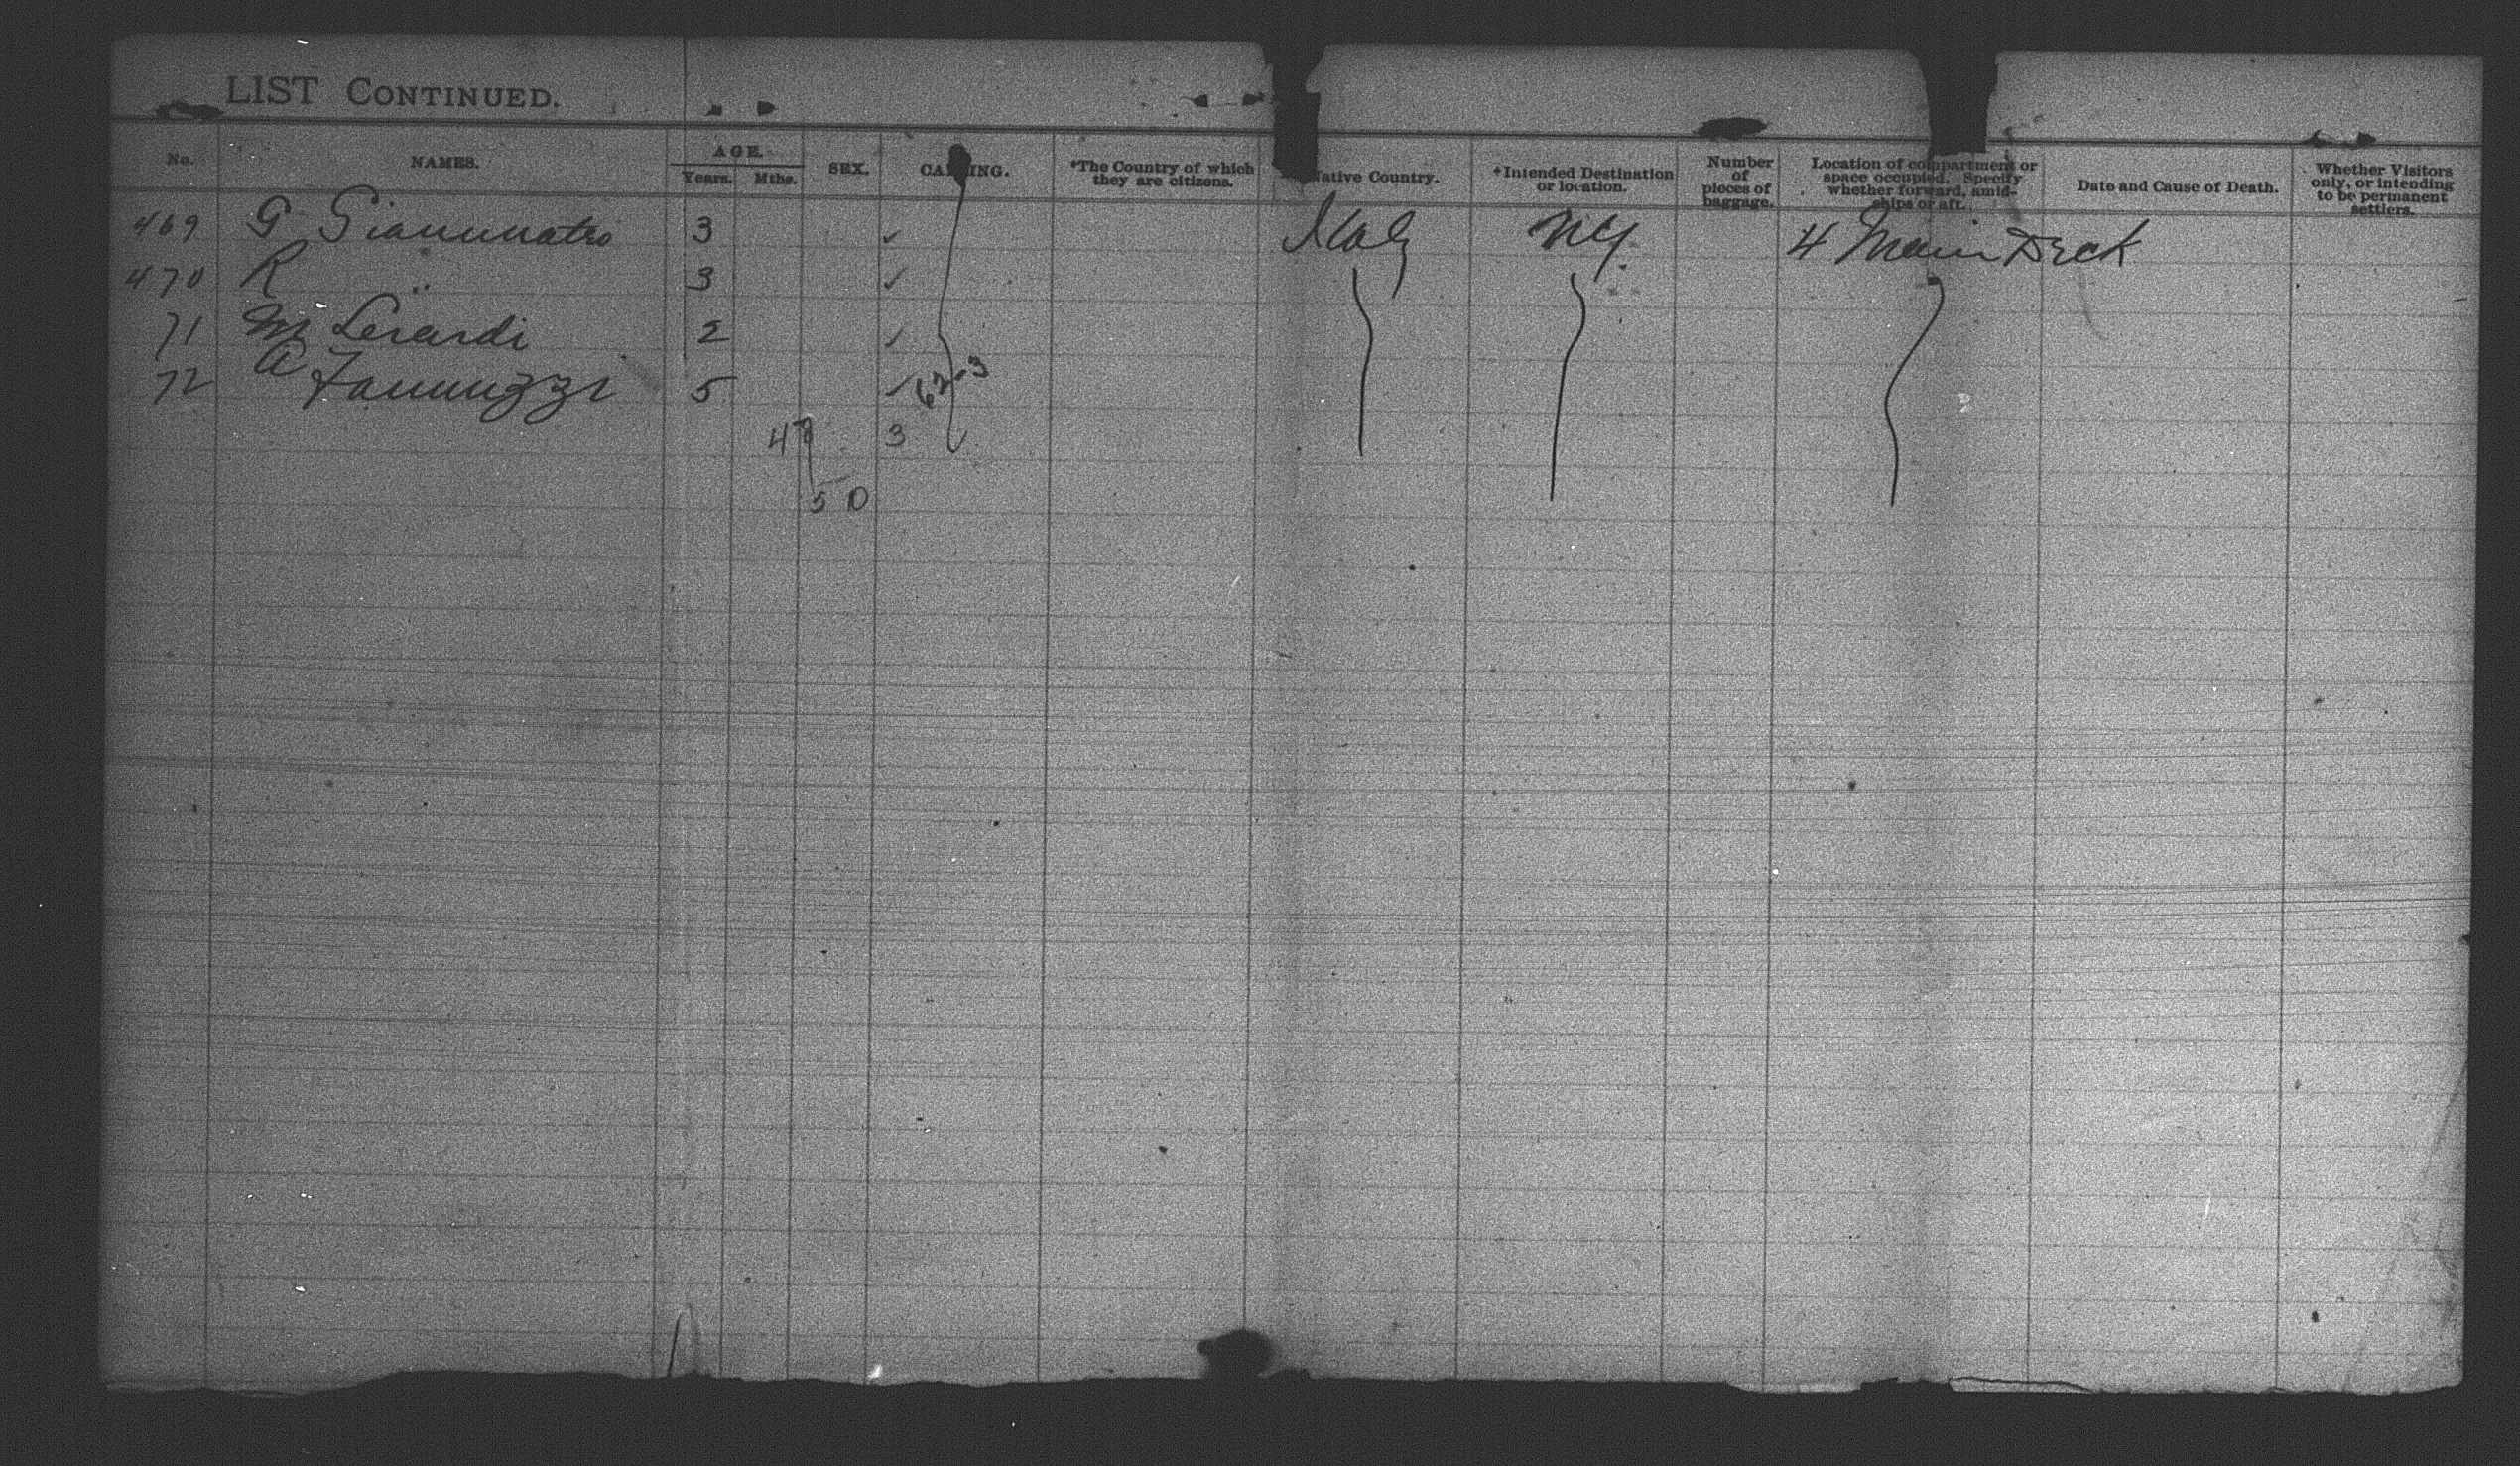 LIST CONTINUED.
No. NAMES. AGE. Years. Mths. SEX. CALLING. *The Country of which they are citizens. Native Country. *Intended Destination or location. Number of pieces of baggage. Location of compartment or space occupied. Specify whether forward, amidships or aft. Date and Cause of Death. Whether Visitors only, or intending to be permanent settlers.
469 G 3 ✓ Italy NY. 4 Main Deck
470 R " 3 ✓
71 M Lerardi 2 ✓
72 a 5 ✓ 62-3
3
50